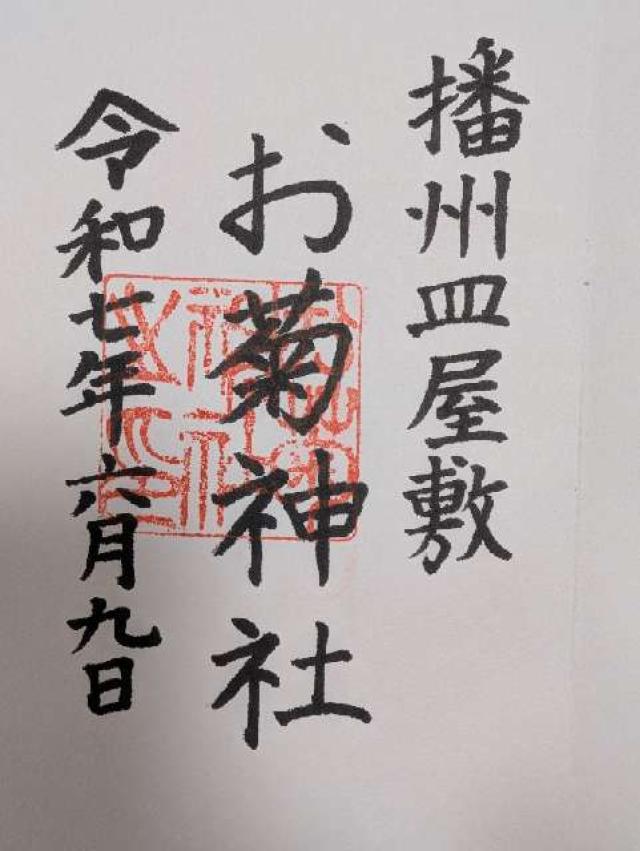 播州皿屋敷
お菊神社
令和七年六月九日